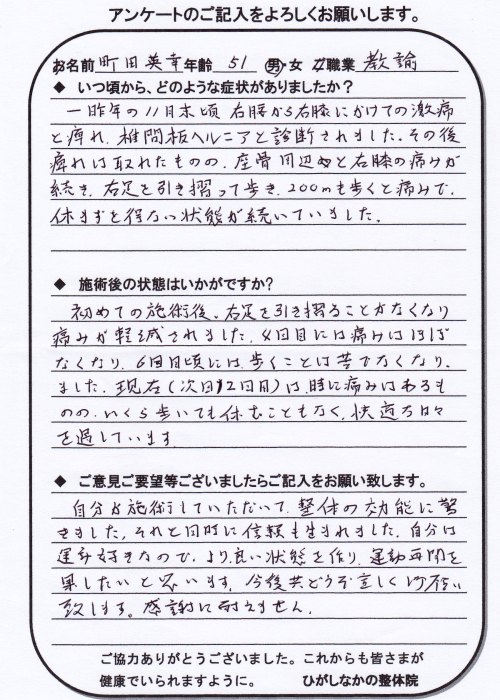 アンケートのご記入をよろしくお願いします。
お名前 町田英幸 年齢 51 男・女 ご職業 教諭
◆ いつ頃から、どのような症状がありましたか?
一昨年の11月末頃 右腰から右膝にかけての激痛
と痺れ。椎間板ヘルニアと診断されました。その後
痺れは取れたものの、座骨周辺と右膝の痛みが
続き、右足を引き摺って歩き、200mも歩くと痛みで、
休まずを得ない状態が続いていました。
◆ 施術後の状態はいかがですか?
初めての施術後、右足を引き摺ることがなくなり
痛みが軽減されました。4回目には痛みはほぼ
なくなり、6回目頃には、歩くことは苦でなくなり
ました。現在(次回12回目)は、時に痛みはあるも
のの、いくら歩いても休むこともなく、快適な日々
を過しています。
◆ ご意見ご要望等ございましたらご記入をお願い致します。
自分も施術していただいて、整体の効能に驚
きました。それと同時に信頼も生まれました。自分は
運動好きなので、より良い状態を作り、運動再開を
果したいと思います。今後共どうぞ宜しくお願い
致します。感謝に耐えません。
ご協力ありがとうございました。これからも皆さまが
健康でいられますように。 ひがしなかの整体院